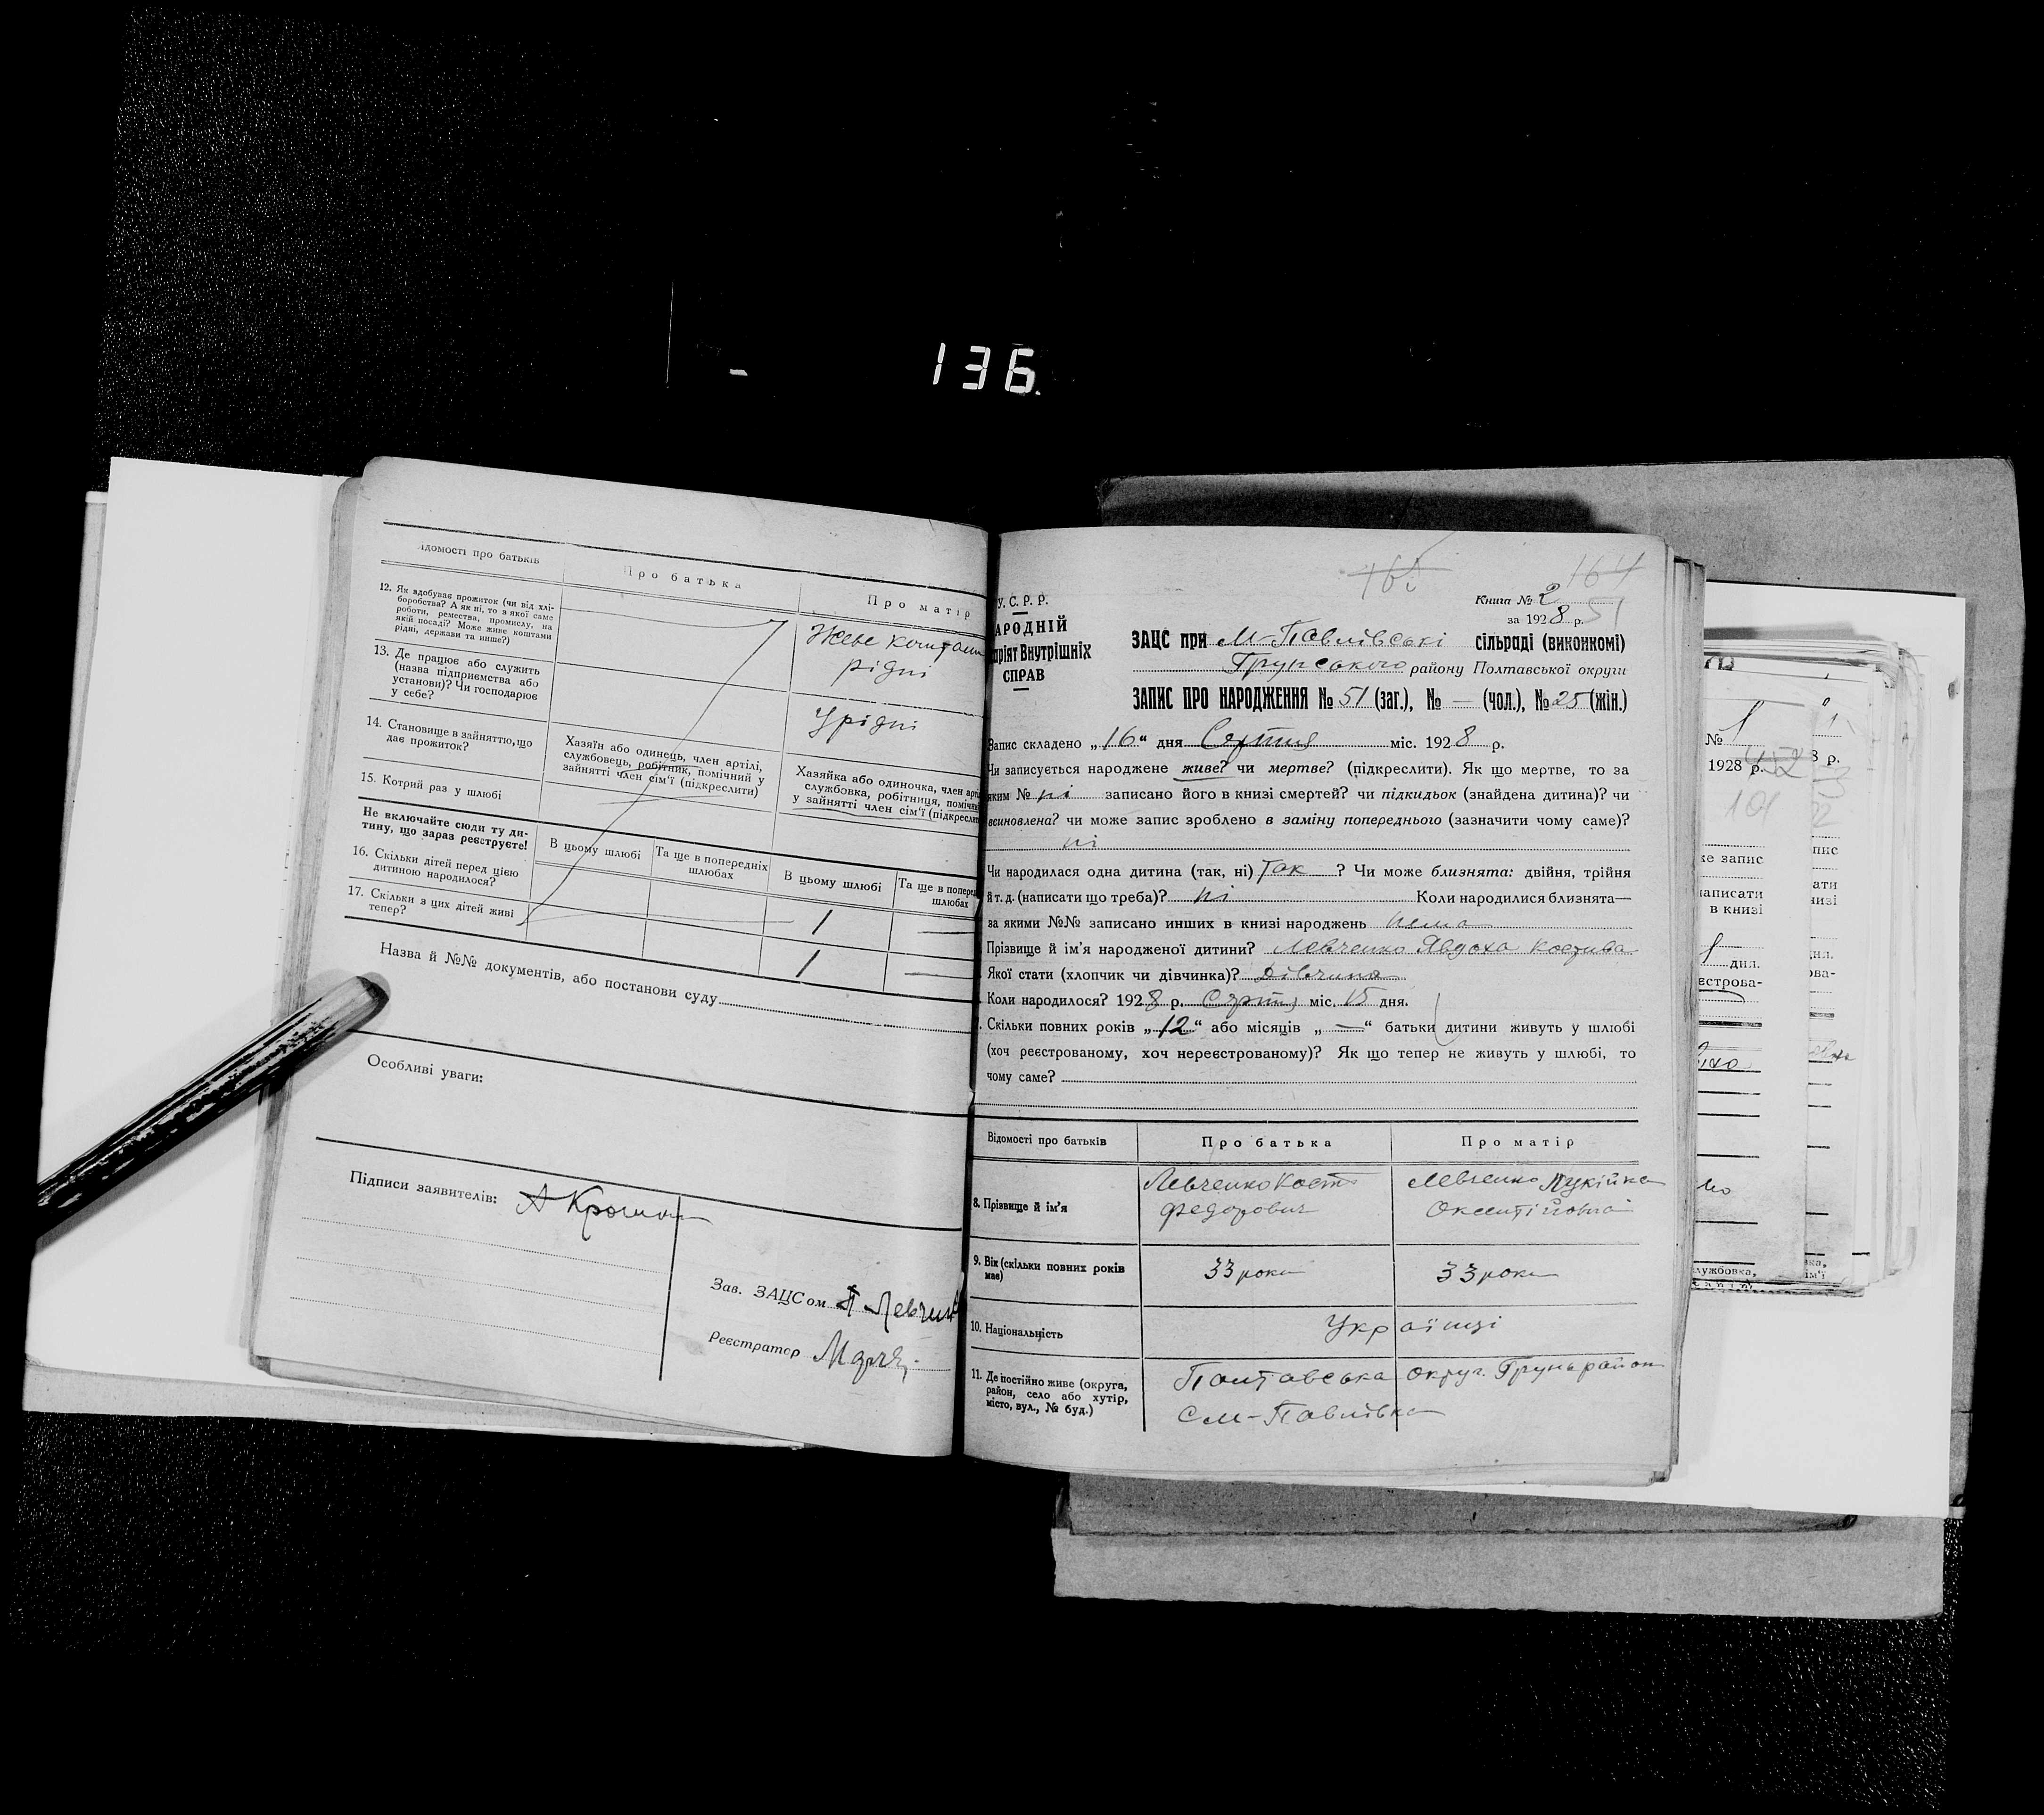 136.
ідомості про батьків
Про батька
Про матір
12. Як здобуває прожиток (чи від хлі-
боробства? А як ні, то з якої саме
роботи, ремества, промислу, на
якій посаді? Може живе коштами
рідні, держави та инше?)
Живе коштами
рідні
13. Де працює або служить
(назва підприємства або
установи)? Чи господарює
у себе?
У рідні
14. Становище в зайняттю, що
дає прожиток?
Хазяїн або одинець, член артілі,
службовець, робітник, помічний у
зайнятті член сім'ї (підкреслити)
Хазяйка або одиночка, член арті
службовка, робітниця, помічни
у зайнятті член сім'ї (підкреслит
15. Котрий раз у шлюбі
Не включайте сюди ту ди-
тину, що зараз реєструєте!
В цьому шлюбі
Та ще в попередніх
шлюбах
В цьому шлюбі
Та ще в поперед
шлюбах
16. Скільки дітей перед цією
дитиною народилося?
1 —
17. Скільки з цих дітей живі
тепер?
1 —
Назва й №№ документів, або постанови суду
Особливі уваги:
Підписи заявителів:
Зав. ЗАЦСом
Реєстратор
164
У. С. Р. Р.
АРОДНІЙ
аріят Внутрішніх
СПРАВ
Книга № 2
за 1928 р.
51
ЗАЦС при М-Павлівські сільраді (виконкомі)
Грунського району Полтавської округи
ЗАПИС ПРО НАРОДЖЕННЯ № 51 (заг.), № — (чол.), № 25 (жін.)
Запис складено „16“ дня Серпня міс. 1928 р.
Чи записується народжене живе? чи мертве? (підкреслити). Як що мертве, то за
яким № ні записано його в книзі смертей? чи підкидьок (знайдена дитина)? чи
всиновлена? чи може запис зроблено в заміну попереднього (зазначити чому саме)?
ні
Чи народилася одна дитина (так, ні) так ? Чи може близнята: двійня, трійня
й т. д. (написати що треба)? ні Коли народилися близнята—
за якими №№ записано инших в книзі народжень нема
Прізвище й ім'я народженої дитини? Левченко Явдоха Костива
Якої стати (хлопчик чи дівчинка)? Дівчина
Коли народилося? 1928 р. Серпня міс. 15 дня.
Скільки повних років „12“ або місяців „—“ батьки дитини живуть у шлюбі
(хоч реєстрованому, хоч нереєстрованому)? Як що тепер не живуть у шлюбі, то
чому саме?
Відомості про батьків
Про батька
Про матір
8. Прізвище й ім'я
Левченко Кость
Федорович
Левченко Лукійка
Оксентіївна
9. Вік (скільки повних років
має)
33 роки
33 роки
10. Національність
Українці
11. Де постійно живе (округа,
район, село або хутір,
місто, вул., № буд.)
Полтавська округ. Грунь район
С М-Павлівка
№ 1
1928 р.
8 р.
101
же запис
написати
в книзі
дня.
естрова-
лужбовка,